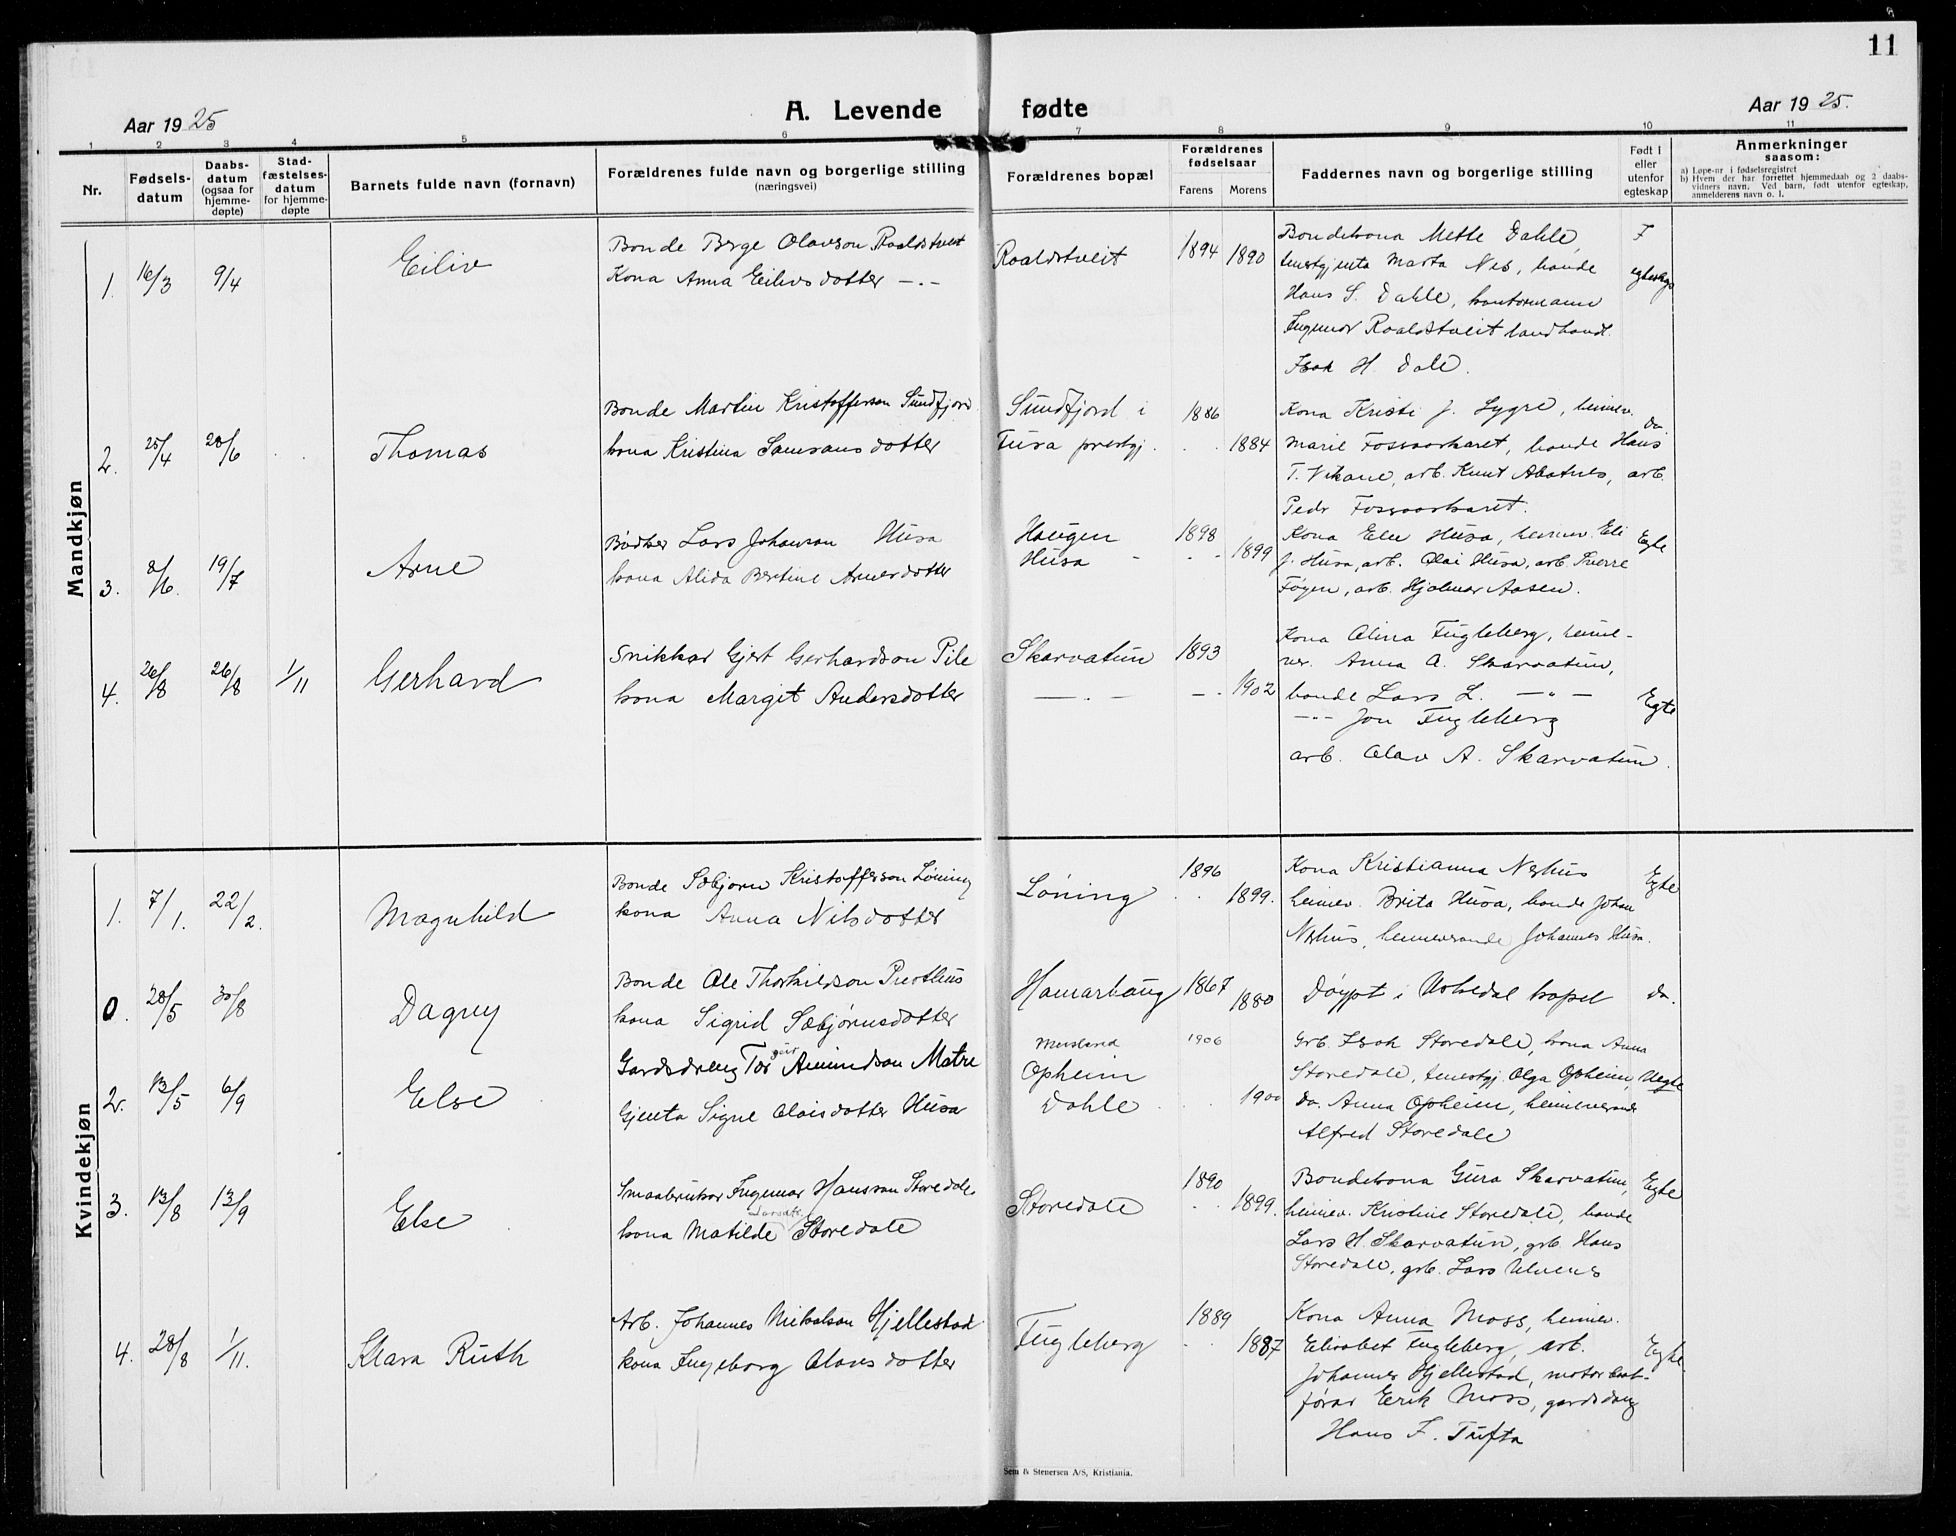 11
Aar 1925
A. Levende fødte
Aar 1925.
1 2 3 4 5 6 7 8 9 10 11
Nr.
Fødsels-
datum
Daabs-
datum
(ogsaa for
hjemme-
døpte)
Stad-
fæstelses-
datum
for hjemme-
døpte
Barnets fulde navn (fornavn)
Forældrenes fulde navn og borgerlige stilling
(næringsvei)
Forældrenes bopæl
Forældrenes
fødselsaar
Farens Morens
Faddernes navn og borgerlige stilling
Født i
eller
utenfor
egteskap
Anmerkninger
saasom:
a) Løpe-nr i fødselsregistret
b) Hvem der har forrettet hjemmedaab og 2 daabs-
vidners navn. Ved barn, født utenfor egteskap,
anmelderens navn o. l.
Mandkjøn
1. 16/3 9/4 Eiliv
Bonde Berge Olavson Roaldstveit
Kona Anna Eilivsdotter —.—
Roaldstveit 1894 1890
Bondekona Mette Dahle,
tenestgjenta Marta Nes, bonde
Hans S. Dahle, kontormann
Ingemar Roaldstveit landhandl.
Isak H. Dale.
I
2. 25/4 28/6 Thomas
Bonde Martin Kristofferson Sundfjord
kona Kristina Samsonsdotter
Sundfjord i
Fusa prestgj.
1886
1884
Kona Kristi J. Lygre, heimev.
Marie Fossaaskaret, bonde Hans
T. Vikane, arb. Knut Abotnes, arb.
Peder Fossaaskaret.
Do
3. 8/6. 19/7 Arne
Bødker Lars Johanson Husa
kona Alida Bertine Arnesdotter
Haugen
Husa
1898
1899
Kona Elen Husa, heimev. Eli
J. Husa, arb. Olai Husa, arb. Sverre
Føyen, arb. Hjalmar Aasen.
Egte
4. 26/8 26/8 1/11 Gerhard
Snikkar Gjert Gerhardson Pile
kona Margit Andersdotter
Skarvatun
— . —
1893
1902
Kona Alina Fugleberg, heime-
ver. Anna A. Skarvatun,
bonde Lars L. —"—
—"— Jon Fugleberg
arb. Olav A. Skarvatun.
Egte
Kvindekjøn
1. 7/1. 22/2. Magnhild
Bonde Sæbjørn Kristofferson Løning
kona Anna Nilsdotter
Løning
1896
1899.
Kona Kristianna Nerhus
heimev. Brita Husa, bonde Johan
Nerhus, heimeverande Johannes Husa.
Egte
0. 28/5 30/8 Dagny
Bonde Ole Thorkildson Presthus
kona Sigrid Sæbjørnsdotter
Hamarhaug 1867
1880
Døypt i Uskedal kapel
do.
2. 13/5 6/9 Else
Gardsdreng Torgeir Amundson Matre
Gjenta Signe Olaisdotter Husa
Opheim
Dahle
1906
1900
Grb. Isak Storedale, kona Anna
Storedale, tenestgj. Olga Opheim,
do. Anna Opheim, heimeverande
Alfred Storedale
Uegte
3. 13/8 13/9 Else
Smaabrukar Ingemar Hansson Storedale
kona Matilde Storedale
Storedale
1890
1899.
Bondekona Gura Skarvatun,
heimev. Kristine Storedale, bonde
Lars H. Skarvatun, grb. Hans
Storedale, grb. Lars Ulvenes
Egte
4. 28/8 1/11. Klara Ruth
Arb. Johannes Nikolson Hjellestad
kona Ingeborg Olavsdotter
Fugleberg
1889
1887
Kona Anna Moss, heimev.
Elisabet Fugleberg, arb.
Johannes Hjellestad, motorbåt-
førar Erik Moss, gardsdreng
Hans F. Tufta
Egte
Sem & Stenersen A/S, Kristiania.